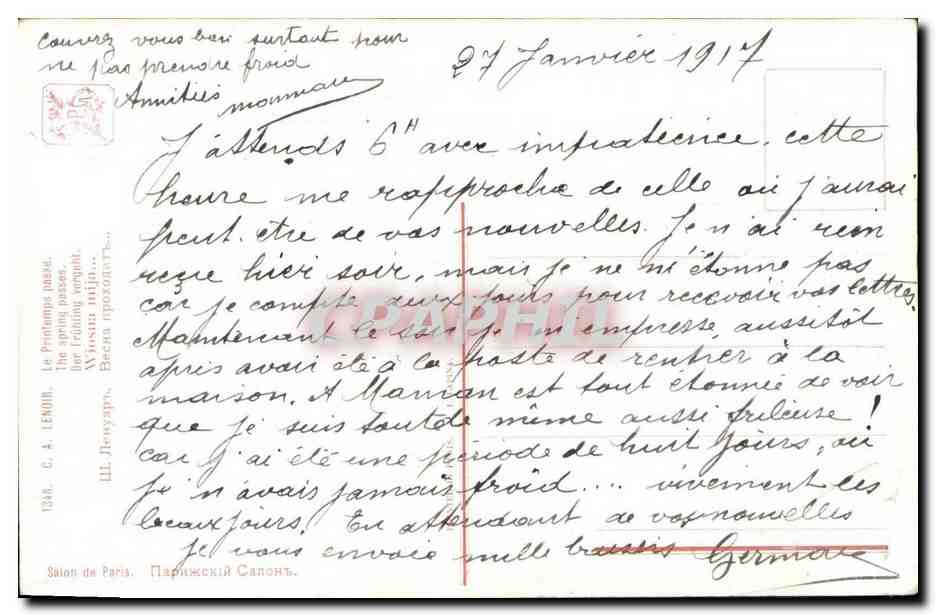 couvrez vous bien surtout pour
ne pas prendre froid
Amitiés maman
27 Janvier 1917
J'attends 6H avec impatience. cette
heure me rapproche de celle où j'aurai
peut-être de vos nouvelles. Je n'ai rien
reçue hier soir, mais je ne m'étonne pas
car je compte deux jours pour recevoir vos lettres.
Maintenant le soir je m'empresse aussitôt
après avoir été à la poste de rentrer à la
maison. A Maman est tout étonnée de voir
que je suis tout de même aussi frileuse!
car j'ai été une période de huit jours, où
je n'avais jamais froid.... vivement les
beaux jours. En attendant de vos nouvelles
je vous envoie mille baisers Germaine
1348. C. A. LENOIR. Le Printemps passe.
The spring passes.
Der Frühling vergeht.
Wiosna mija...
Ш. Ленуаръ. Весна проходитъ...
Salon de Paris. Парижскій Салонъ.
CPAPHIL